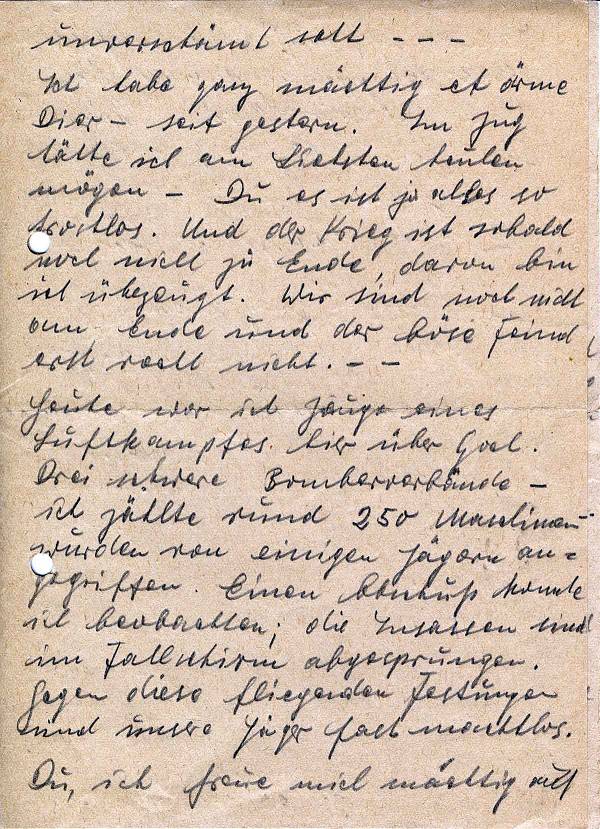 unverschämt satt - - -
Ich habe ganz mächtig et ärme
Dier - seit gestern. Im Zug
hätte ich am liebsten heulen
mögen - Du es ist ja alles so
trostlos. Und der Krieg ist sobald
noch nicht zu Ende, davon bin
ich übezeugt. Wir sind noch nicht
am Ende und der böse Feind
erst recht nicht. - -
Heute war ich Zeuge eines
Luftkampfes hier über
Drei schwere Bomberverbände -
ich zählte rund 250 Maschinen
wurden von einigen Jägern an=
gegriffen. Einen Abschuß konnte
ich beobachten; die Insassen sind
im Fallschirm abgesprungen.
Gegen diese fliegenden Festungen
sind unsere Jäger fast machtlos.
Du, ich freue mich mächtig auf